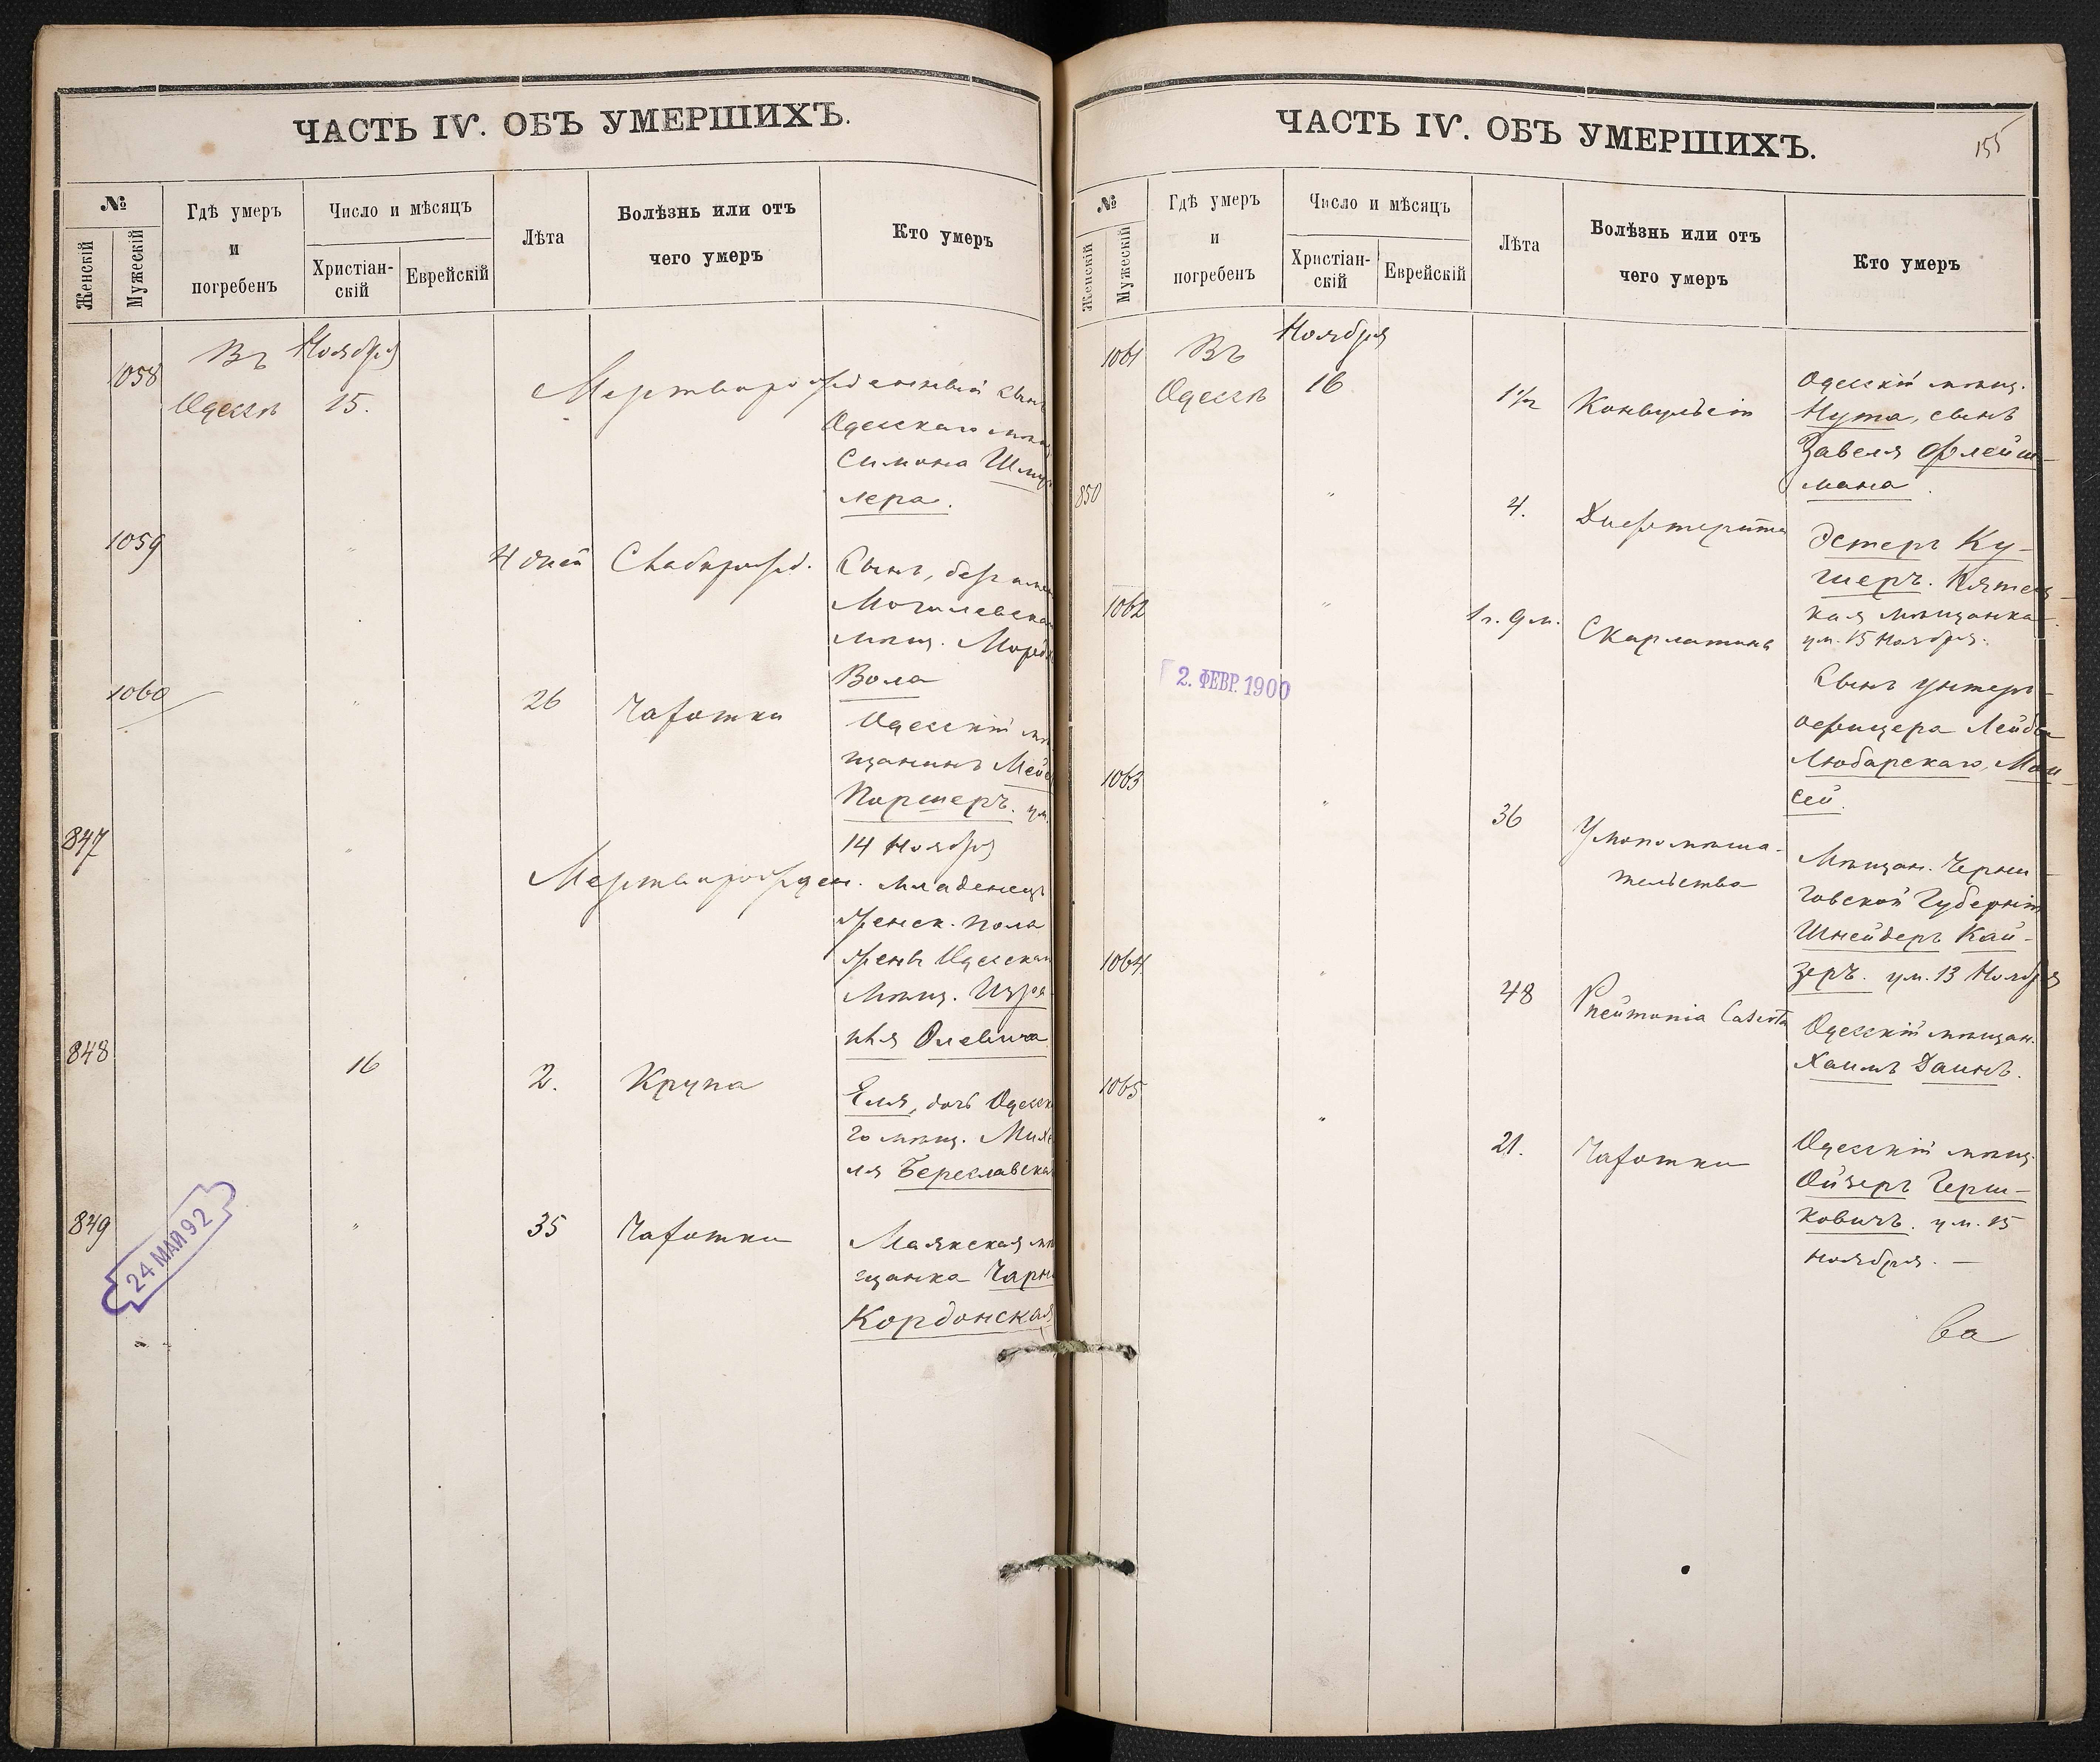 ЧАСТЬ IV. ОБЪ УМЕРШИХЪ.
№
Женскій
Мужескій
Гдѣ умеръ
и
погребенъ
Число и мѣсяцъ
Христіан-
скій
Еврейскій
Лѣта
Болѣзнь или отъ
чего умеръ
Кто умеръ
1058
Въ
Одессѣ
Ноября
15.
Мертворожденный сынъ
Одесскаго мѣщ
Симона
лера.
1059
"
4 дней
Слаборожд.
Сынъ, безъ имен
Могилевска
мѣщ. Мордк
Вола
1060
"
26
Чахотки
Одесскій мѣ
щанинъ
Портеръ. ум.
14 Ноября
847
"
Мертворожден. младенецъ
женск. пола
жены Одесскаго
мѣщ. Изра
иля
848
16
2.
Крупа
Еля, дочь Одесска
го мѣщ. Михе
ля Береславска
849
"
35
Чахотки
Маякская мѣ
щанка Чарна
Кордонская
24 МАЙ 92
ЧАСТЬ IV. ОБЪ УМЕРШИХЪ.
155
№
Женскій
Мужескій
Гдѣ умеръ
и
погребенъ
Число и мѣсяцъ
Христіан-
скій
Еврейскій
Лѣта
Болѣзнь или отъ
чего умеръ
Кто умеръ
1061
Въ
Одессѣ
Ноября
16
1½
Конвульсіи
Одесскій мѣщ.
Нута, сынъ
Завеля Флейш-
мана.
850
"
4.
Дифтерита
Эстеръ Ку-
шеръ.
кая мѣщанка.
ум. 15 Ноября.
1062
"
1 г. 9 м.
Скарлатины
Сынъ унтеръ-
офицера Лейбы
Любарскаго, Мои-
сей.
2. ФЕВР. 1900
1063
"
36
Умопомѣша-
тельства
Мѣщан. Черни-
говской Губерніи
Шнейдеръ Кай-
зеръ. ум. 13 Ноября
1064
"
48
Pneumonia Caseosa
Одесскій мѣщан.
Хаимъ Даинъ.
1065
"
21.
Чахотки
Одесскій мѣщ.
Ойзеръ Герш-
ковичъ. ум. 15
ноября. —